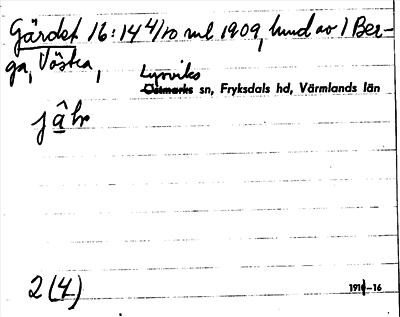 Gärdet 16:14 4/10 ml 1909, lund av 1 Ber-
ga, Västra,
Lysviks
Östmarks sn, Fryksdals hd, Värmlands län
jâhr
2(4)
1911-16